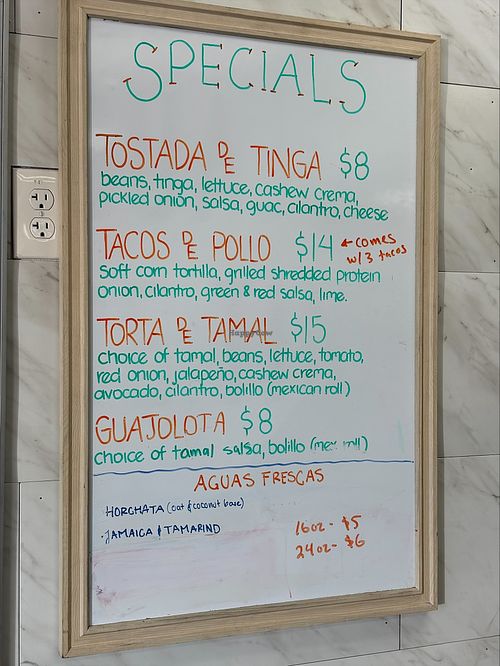 SPECIALS
TOSTADA DE TINGA $8
beans, tinga, lettuce, cashew crema,
pickled onion, salsa, guac, cilantro, cheese
TACOS DE POLLO $14 ← comes
w/3 tacos
soft corn tortilla, grilled shredded protein
onion, cilantro, green & red salsa, lime.
TORTA DE TAMAL $15
HappyCow
choice of tamal, beans, lettuce, tomato,
red onion, jalapeño, cashew crema,
avocado, cilantro, bolillo (mexican roll)
GUAJOLOTA $8
choice of tamal salsa, bolillo (mex roll)
AGUAS FRESCAS
HORCHATA (oat & coconut base)
·JAMAICA & TAMARIND
16oz- $5
24oz- $6